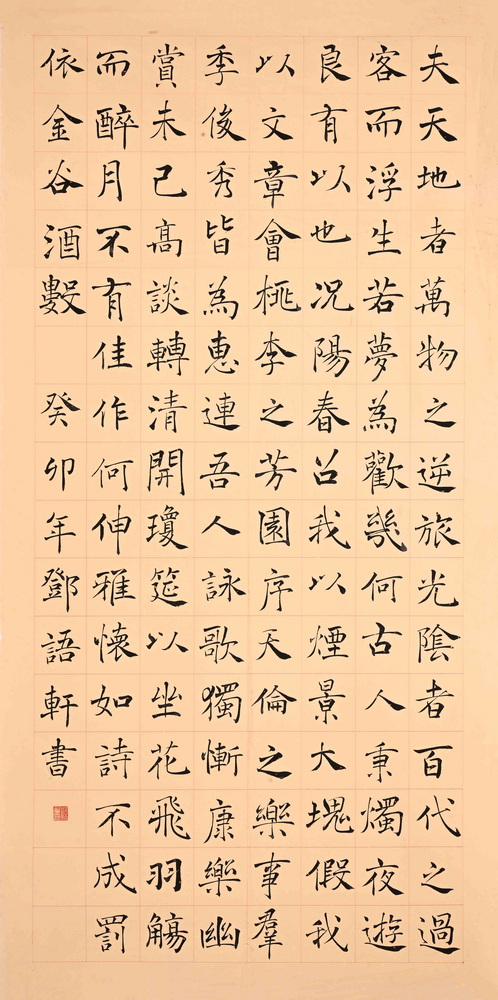 夫天地者萬物之逆旅光陰者百代之過
客而浮生若夢為歡幾何古人秉燭夜遊
良有以也况陽春召我以煙景大塊假我
以文章會桃李之芳園序天倫之樂事羣
季俊秀皆為惠連吾人詠歌獨慚康樂幽
賞未已高談轉清開瓊筵以坐花飛羽觴
而醉月不有佳作何伸雅懷如詩不成罰
依金谷酒數 癸卯年鄧語軒書